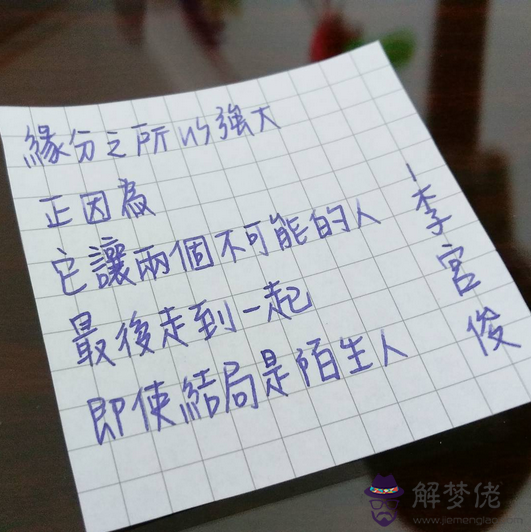 緣分之所以強大
正因為
它讓兩個不可能的人
最後走到一起
即使結局是陌生人
-李宮俊
解梦佬
www.jiemenglao.com